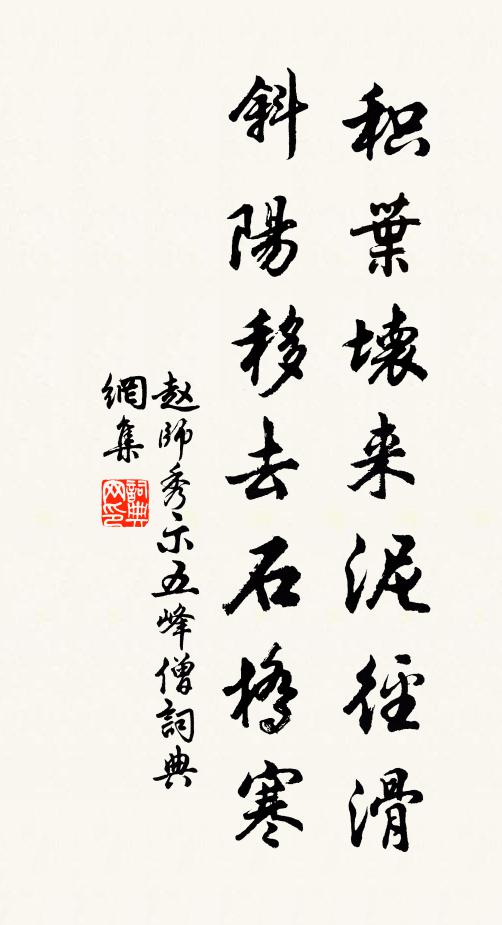 积葉壊来泥徑滑
斜陽移去石橋寒
赵師秀示五峰僧詞典
網集
詞典網印